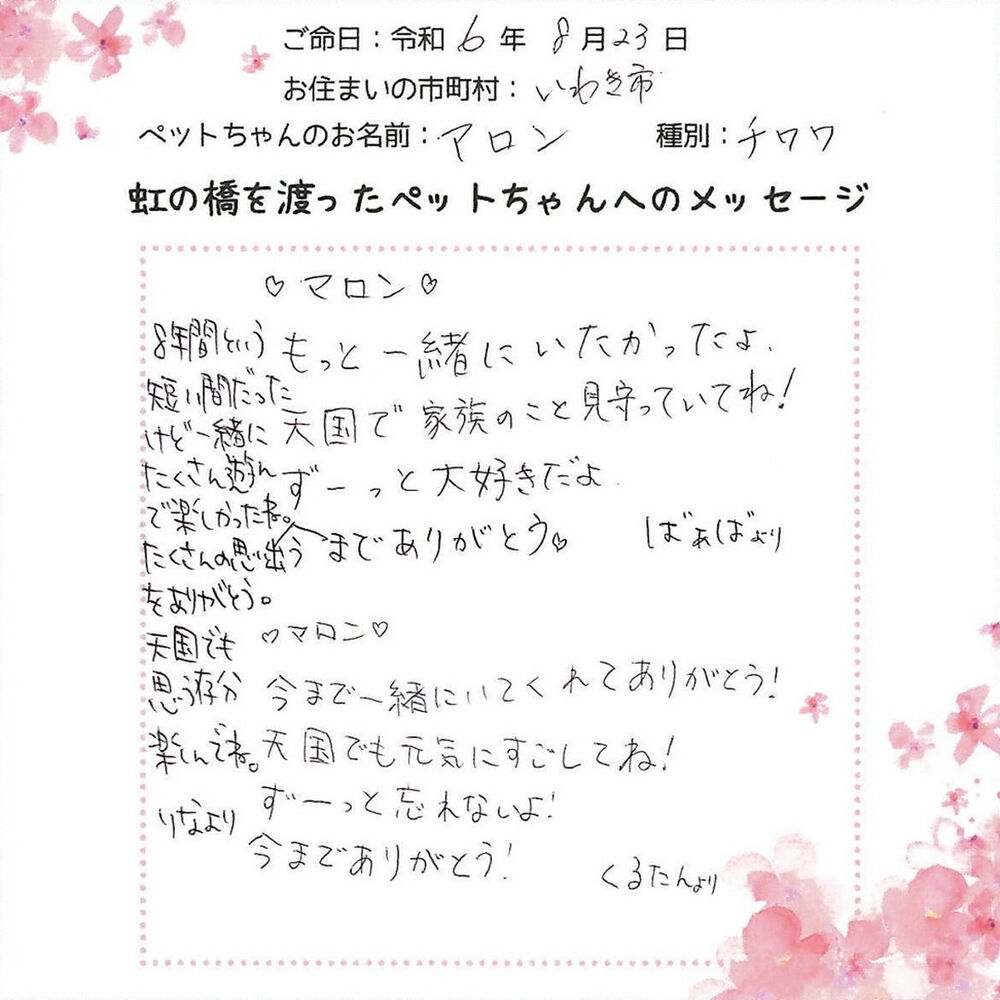 ご命日：令和 6 年 8 月 23 日
お住まいの市町村：いわき市
ペットちゃんのお名前：マロン 種別：チワワ
虹の橋を渡ったペットちゃんへのメッセージ
♡マロン♡
もっと一緒にいたかったよ.
天国で家族のこと見守っていてね!
ずーっと大好きだよ.
今までありがとう♡ ばぁばより
8年間という
短い間だった
けど一緒に
たくさん遊ん
で楽しかったね。
たくさんの思い出
をありがとう。
天国でも
思う存分
楽しんでね。
りなより
♡マロン♡
今まで一緒にいてくれてありがとう!
天国でも元気にすごしてね!
ずーっと忘れないよ!
今までありがとう!
くるたんより